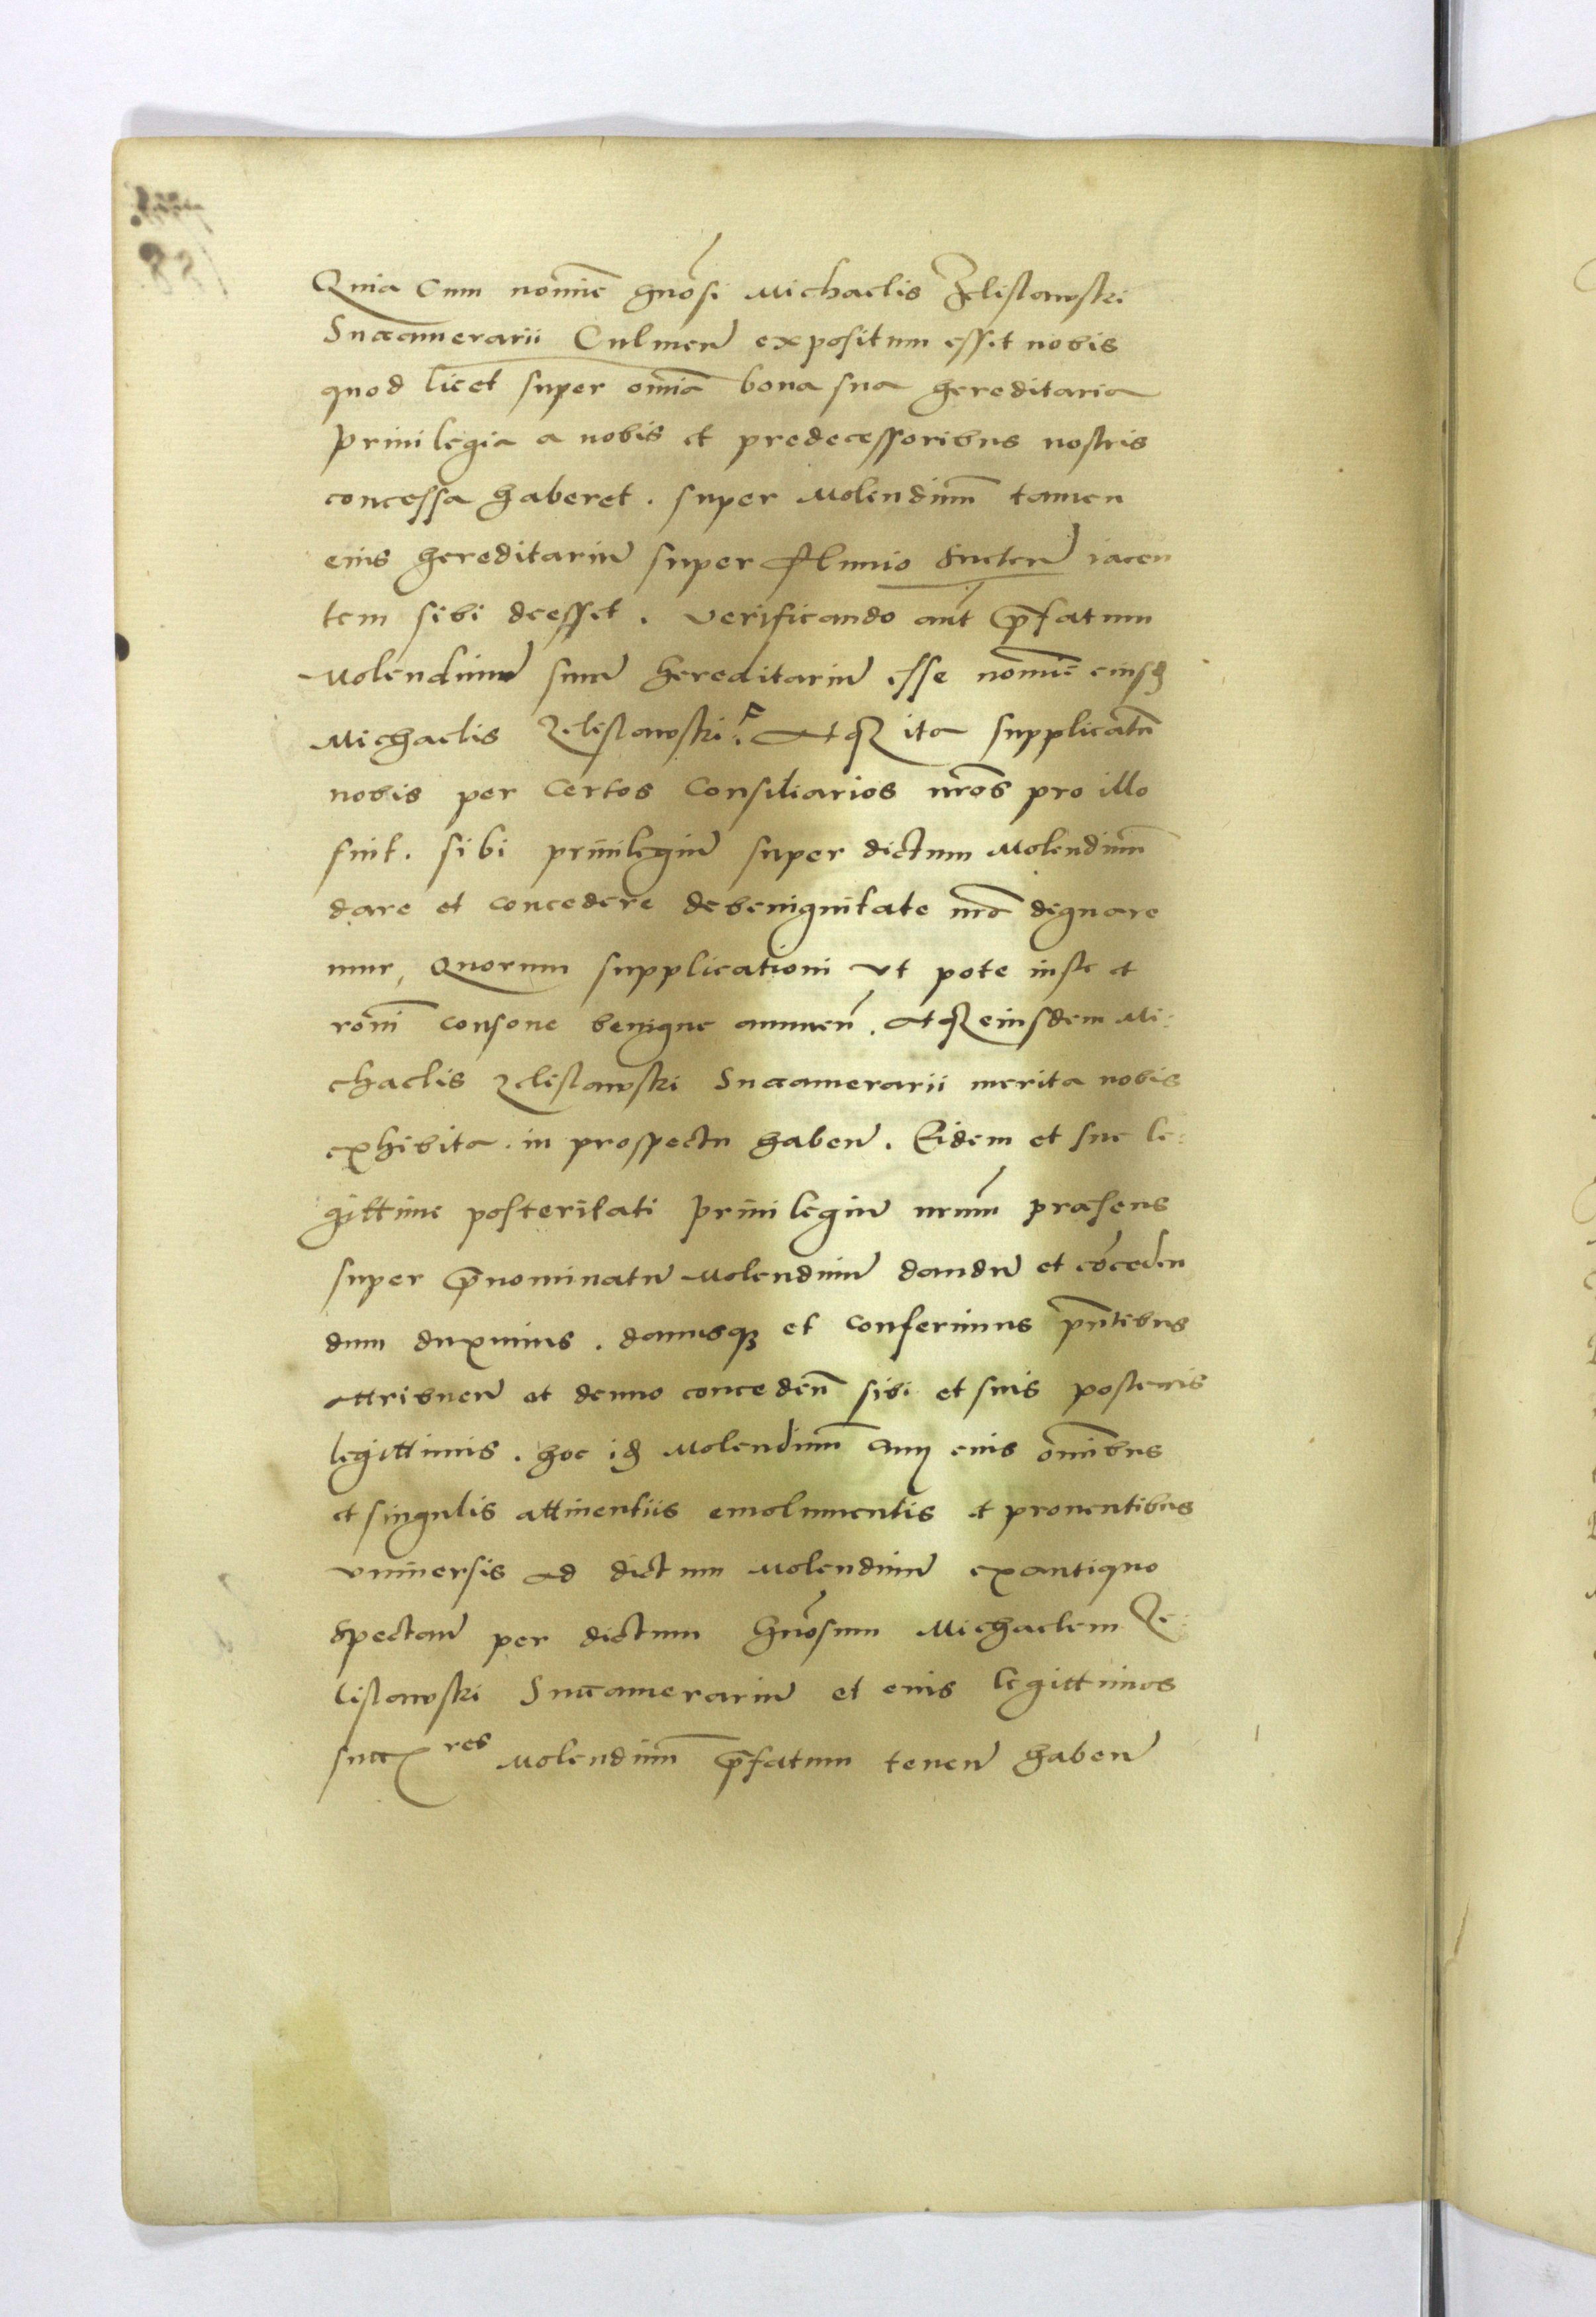 Quia Cum nomĩe gnõsi Michaelis Zelislawski
Succamerarii Culmeñ expositum esset nobis
quod licet super omĩa bona sua hereditaria
priuilegia a nobis et predecessoribus nostris
concessa haberet. super Molendinũ tamen
eius hereditariũ super fluuio iacen
tem sibi deesset. verificando aut̃ p̃fatum
Molendinũ suum̃ hereditariũ esse nomĩe eiusd
Michaelis Zelislawski. Atqz ita supplicatũ
nobis per Certos Consiliarios nr̃os pro illo
fuit. sibi priuilegiũ super dictum Molendinũ
dare et concedere de benignitate nr̃a dignare
mur, Quorum supplicationi vt pote iuste et
rõni consone benigne annueñ. Atqz eiusdem Mi:
chaelis Zelislawski Succamerarii merita nobis
exhibita. in prospectu habeñ. Eidem et sue le:
gittime posteritati priuilegiũ nr̃um præsens
super p̃nominatũ Molendinũ dandũ et cõceden
dum duximus. damusqz et conferimus pñtibus
attribueñ et denuo concedeñ sibi et suis posteris
legittimis. hoc id Molendinũ cum eius omĩbus
et singulis attinentiis emolumentis et prouentibus
vniuersis ad dictum Molendinũ ex antiquo
spectañ per dictum Gnõsum Michaelem Ze:
lislawski Succamerariũ et eius legittimos
succres Molendinũ p̃fatum teneñ habeñ